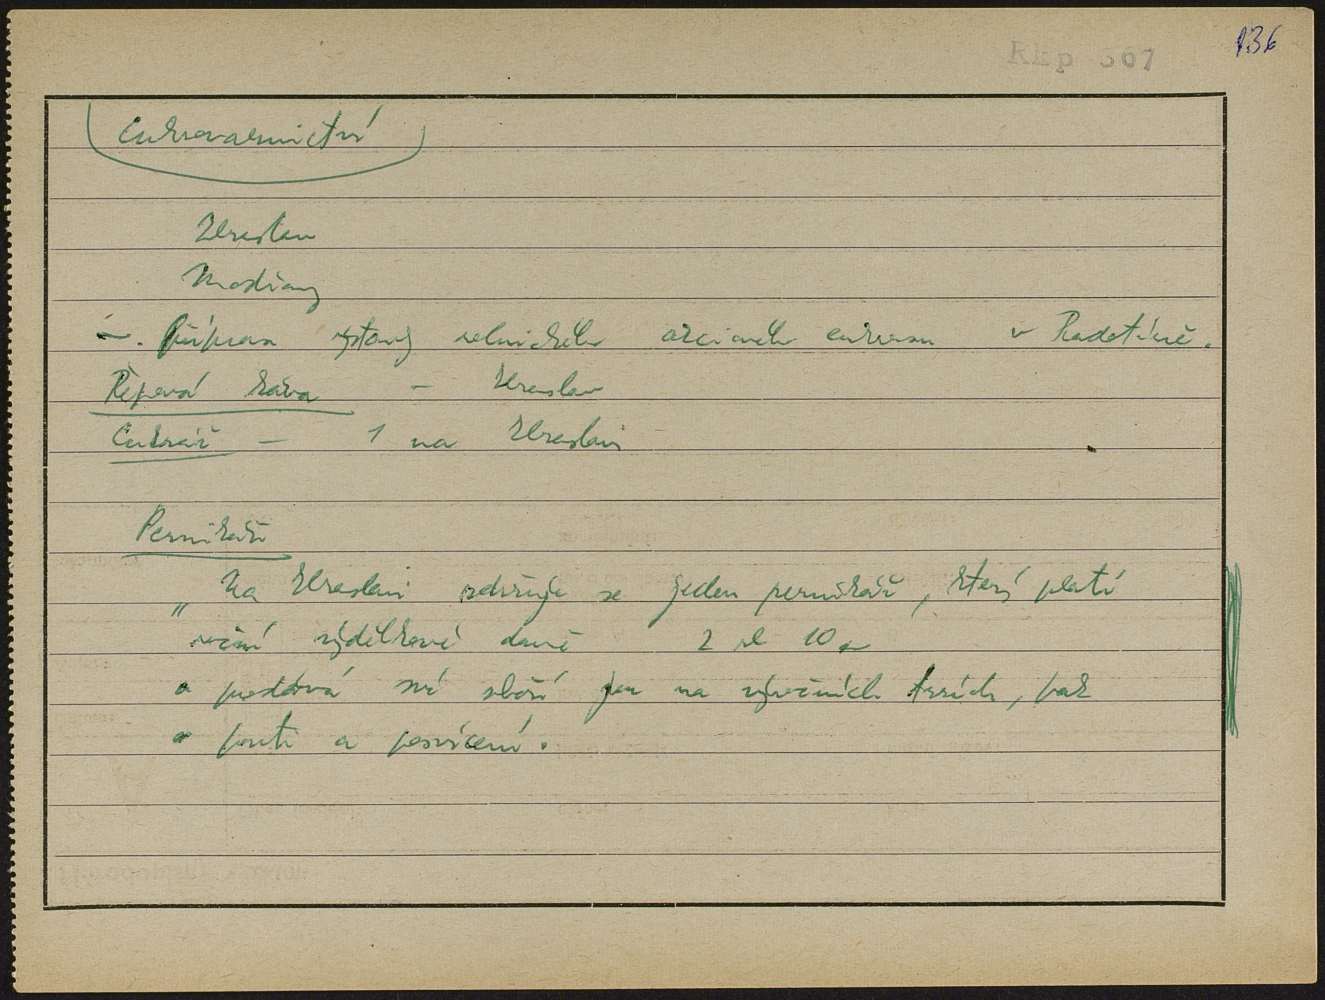 136
Rkp 367
Cukrovarnictví
Zbraslav
Modřany
–. Příprava výstavby rolnického akciového cukrovaru v Radotíně.
Řepová káva – Zbraslav
Cukrář – 1 na Zbraslavi
Pernikáři
„ Na Zbraslavi zdržuje se jeden pernikář, který platí
roční výdělkové daně 2 zl 10
a prodává své zboží jen na výročních trzích, pak
o pouti a posvícení.